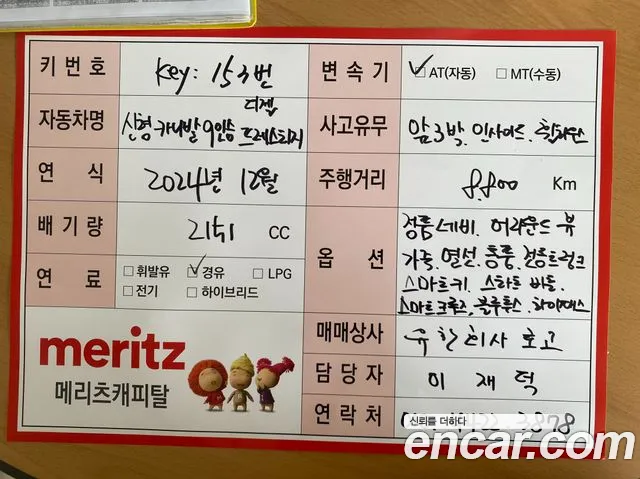 키 번호 Key: 153번
변속기 ✓AT(자동) □MT(수동)
자동차명 신형 카니발 9인승 디젤 프레스티지
사고유무 앞3박, 인사이드, 휠하우스
연 식 2024년 12월
주행거리 8,800 Km
배기량 2151 CC
옵 션 정품네비, 어라운드 뷰
가죽, 열선, 통풍, 전동트렁크
스마트키, 스티어링
스마트크루즈, 블루투스, 하이패스
연 료 □휘발유 ✓경유 □LPG
□전기 □하이브리드
매매상사 유한회사
담당자 이재덕
연락처 3878
신뢰를 더하다
meritz
메리츠캐피탈
encar.com